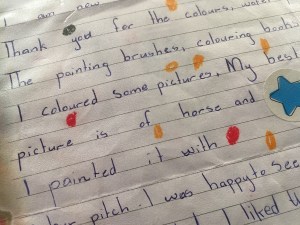 I am new
Thank you for the colours, water
The painting brushes, colouring books
I coloured some pictures. My best
picture is of horse and
I painted it with
her pitch. I was happy to see
I liked